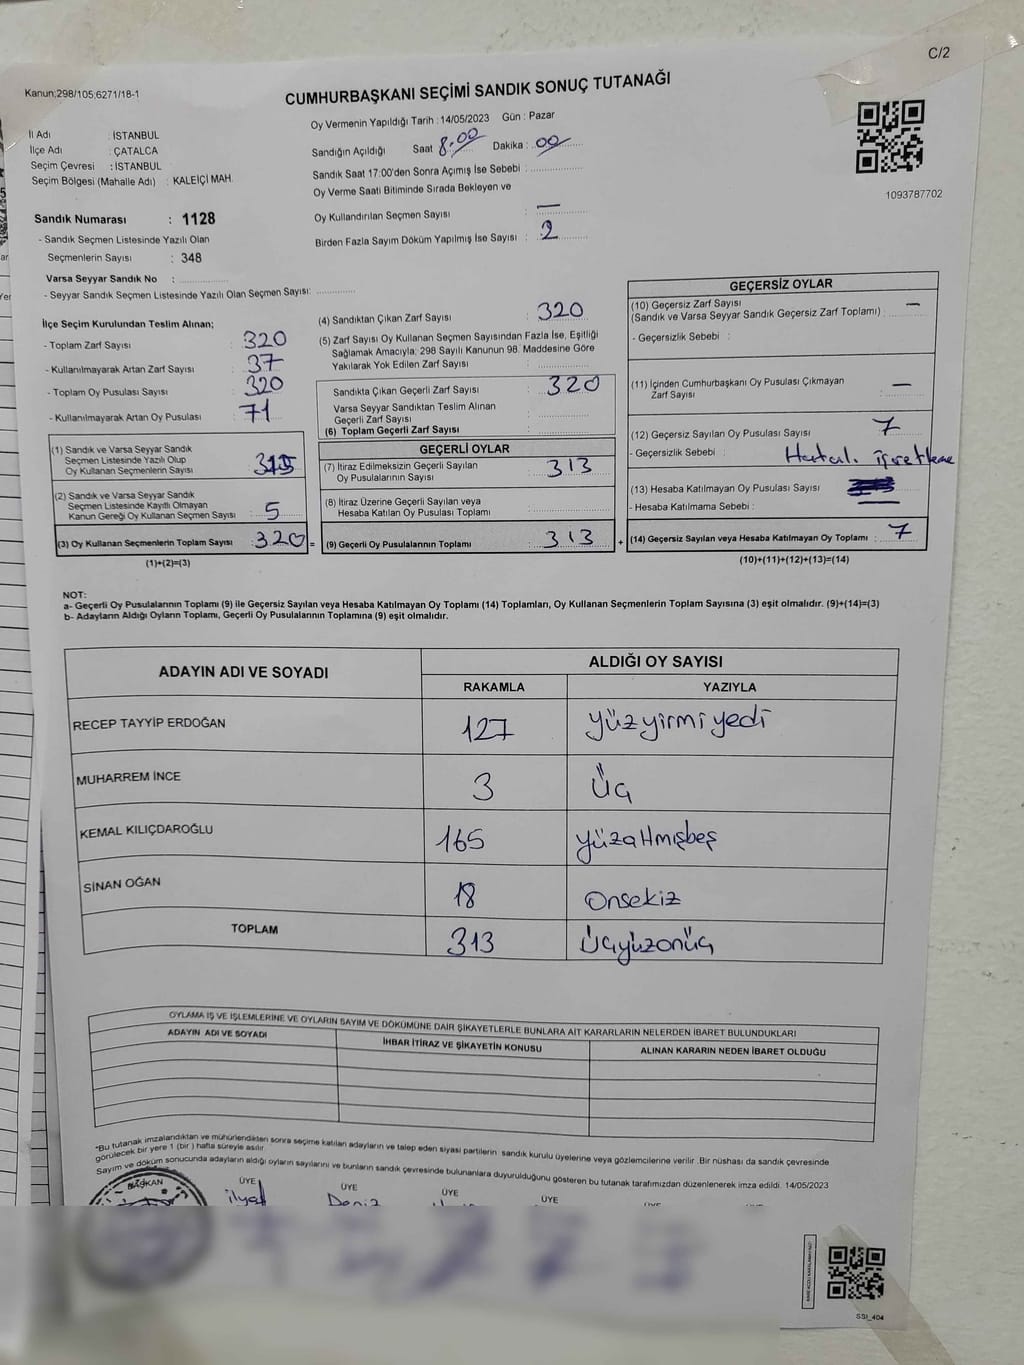 C/2
Kanun;298/105;6271/18-1
CUMHURBAŞKANI SEÇİMİ SANDIK SONUÇ TUTANAĞI
1093787702
İl Adı : İSTANBUL
İlçe Adı : ÇATALCA
Seçim Çevresi : İSTANBUL
Seçim Bölgesi (Mahalle Adı) : KALEİÇİ MAH.
Sandık Numarası : 1128
- Sandık Seçmen Listesinde Yazılı Olan
Seçmenlerin Sayısı : 348
Varsa Seyyar Sandık No :
- Seyyar Sandık Seçmen Listesinde Yazılı Olan Seçmen Sayısı:
Oy Vermenin Yapıldığı Tarih : 14/05/2023 Gün : Pazar
Sandığın Açıldığı Saat 8:00 Dakika : 00
Sandık Saat 17:00'den Sonra Açımış İse Sebebi :
Oy Verme Saati Bitiminde Sırada Bekleyen ve
Oy Kullandırılan Seçmen Sayısı : —
Birden Fazla Sayım Döküm Yapılmış İse Sayısı : 2
İlçe Seçim Kurulundan Teslim Alınan;
- Toplam Zarf Sayısı : 320
- Kullanılmayarak Artan Zarf Sayısı : 37
- Toplam Oy Pusulası Sayısı : 320
- Kullanılmayarak Artan Oy Pusulası : 71
(1) Sandık ve Varsa Seyyar Sandık
Seçmen Listesinde Yazılı Olup
Oy Kullanan Seçmenlerin Sayısı : 315
(2) Sandık ve Varsa Seyyar Sandık
Seçmen Listesinde Kayıtlı Olmayan
Kanun Gereği Oy Kullanan Seçmen Sayısı : 5
(3) Oy Kullanan Seçmenlerin Toplam Sayısı : 320 =
(1)+(2)=(3)
(4) Sandıktan Çıkan Zarf Sayısı : 320
(5) Zarf Sayısı Oy Kullanan Seçmen Sayısından Fazla İse, Eşitliği
Sağlamak Amacıyla; 298 Sayılı Kanunun 98. Maddesine Göre
Yakılarak Yok Edilen Zarf Sayısı :
Sandıkta Çıkan Geçerli Zarf Sayısı : 320
Varsa Seyyar Sandıktan Teslim Alınan
Geçerli Zarf Sayısı :
(6) Toplam Geçerli Zarf Sayısı
GEÇERLİ OYLAR
(7) İtiraz Edilmeksizin Geçerli Sayılan
Oy Pusulalarının Sayısı : 313
(8) İtiraz Üzerine Geçerli Sayılan veya
Hesaba Katılan Oy Pusulası Toplamı :
(9) Geçerli Oy Pusulalarının Toplamı : 313 +
GEÇERSİZ OYLAR
(10) Geçersiz Zarf Sayısı
(Sandık ve Varsa Seyyar Sandık Geçersiz Zarf Toplamı) : —
- Geçersizlik Sebebi :
(11) İçinden Cumhurbaşkanı Oy Pusulası Çıkmayan
Zarf Sayısı : —
(12) Geçersiz Sayılan Oy Pusulası Sayısı : 7
- Geçersizlik Sebebi : Hatalı işretleme
(13) Hesaba Katılmayan Oy Pusulası Sayısı :
- Hesaba Katılmama Sebebi :
(14) Geçersiz Sayılan veya Hesaba Katılmayan Oy Toplamı : 7
(10)+(11)+(12)+(13)=(14)
NOT:
a- Geçerli Oy Pusulalarının Toplamı (9) ile Geçersiz Sayılan veya Hesaba Katılmayan Oy Toplamı (14) Toplamları, Oy Kullanan Seçmenlerin Toplam Sayısına (3) eşit olmalıdır. (9)+(14)=(3)
b- Adayların Aldığı Oyların Toplamı, Geçerli Oy Pusulalarının Toplamına (9) eşit olmalıdır.
ADAYIN ADI VE SOYADI ALDIĞI OY SAYISI
RAKAMLA YAZIYLA
RECEP TAYYİP ERDOĞAN 127 yüzyirmiyedi
MUHARREM İNCE 3 Üç
KEMAL KILIÇDAROĞLU 165 yüzaltmışbeş
SİNAN OĞAN 18 Onsekiz
TOPLAM 313 Üçyüzonüç
OYLAMA İŞ VE İŞLEMLERİNE VE OYLARIN SAYIM VE DÖKÜMÜNE DAİR ŞİKAYETLERLE BUNLARA AİT KARARLARIN NELERDEN İBARET BULUNDUKLARI
ADAYIN ADI VE SOYADI İHBAR İTİRAZ VE ŞİKAYETİN KONUSU ALINAN KARARIN NEDEN İBARET OLDUĞU
*Bu tutanak imzalandıktan ve mühürlendikten sonra seçime katılan adayların ve talep eden siyasi partilerin sandık kurulu üyelerine veya gözlemcilerine verilir. Bir nüshası da sandık çevresinde
görülecek bir yere 1 (bir) hafta süreyle asılır.
Sayım ve döküm sonucunda adayların aldığı oyların sayılarını ve bunların sandık çevresinde bulunanlara duyurulduğunu gösteren bu tutanak tarafımızdan düzenlenerek imza edildi. 14/05/2023
BAŞKAN ÜYE ÜYE ÜYE ÜYE
Deniz
SSİ_404